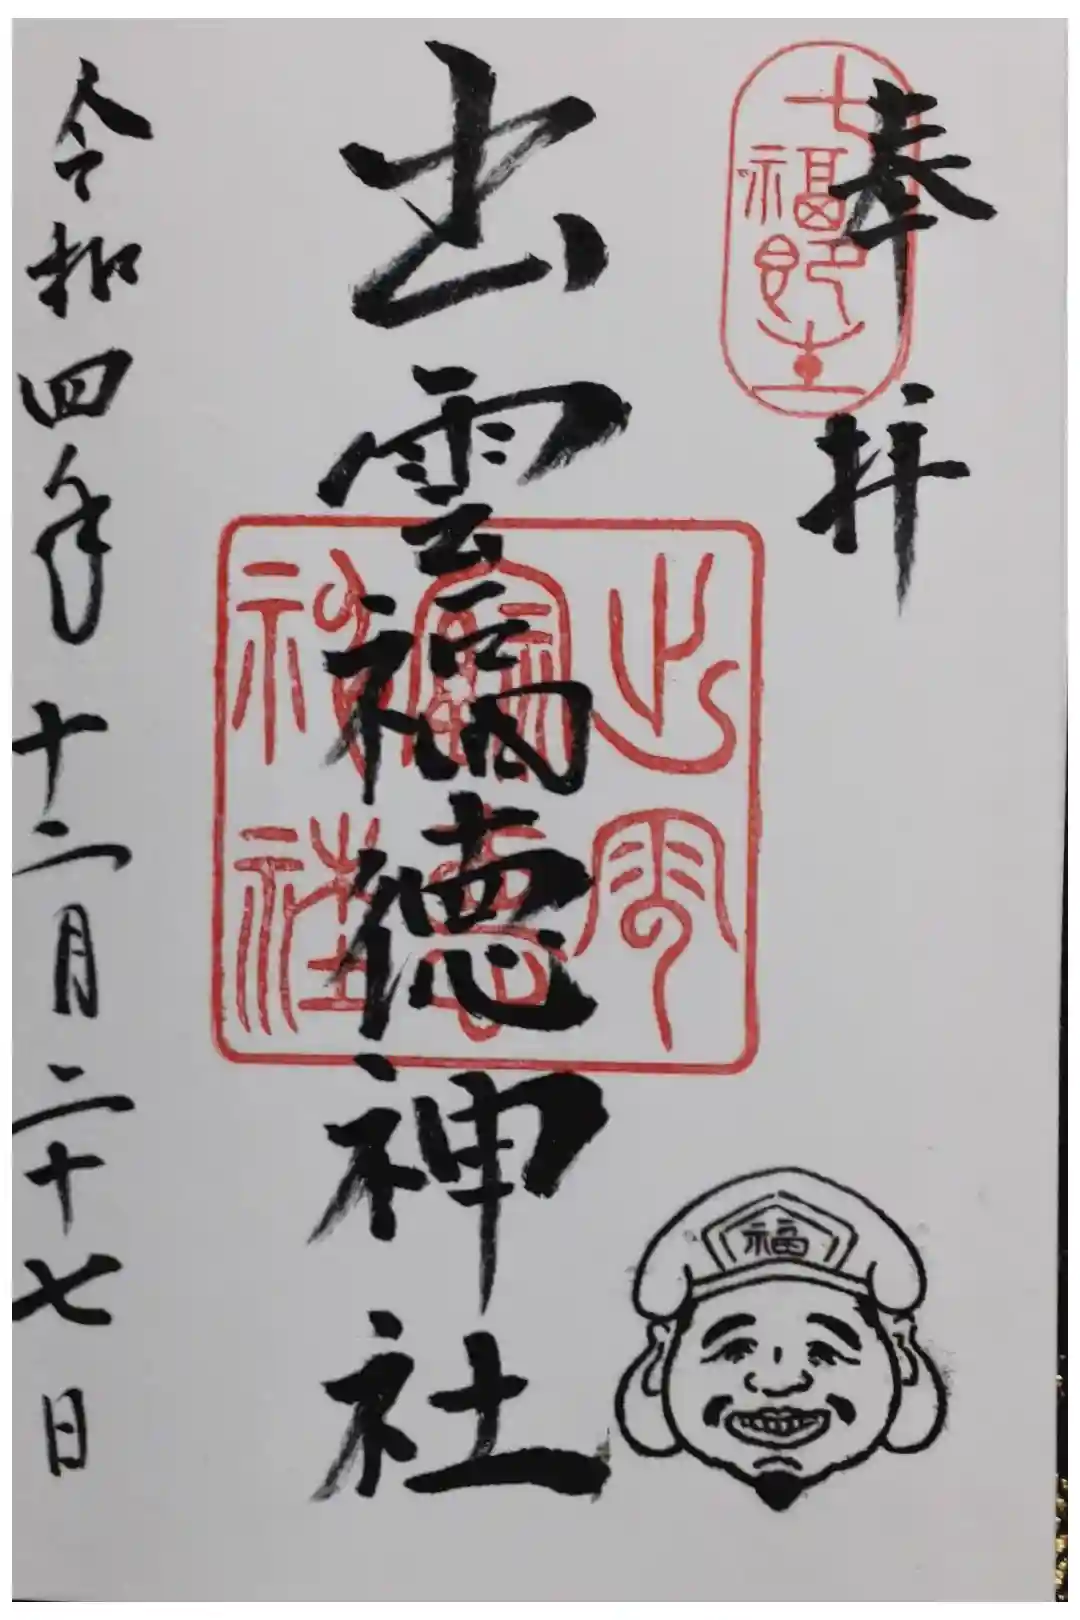 奉拝
七福即生
出雲福徳神社
出雲
福徳
神社
福
令和四年十二月二十七日